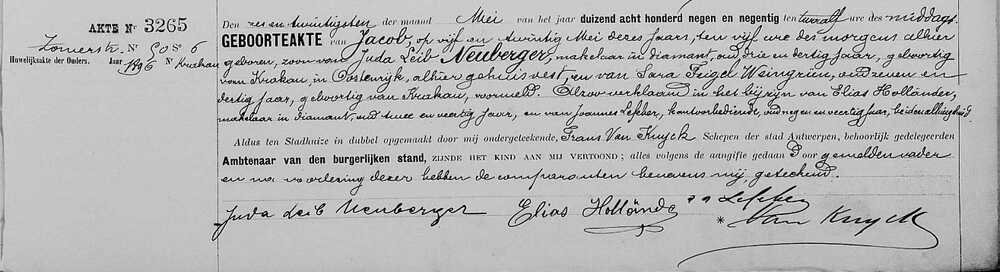 AKTE Nr 3265
Zomerstr. No 50 S 6
Huwelijksakte der Ouders. Jaar 1896 No Krakau
Den zes en twintigsten der maand Mei van het jaar duizend acht honderd negen en negentig ten twaalf ure des middags
GEBOORTEAKTE van Jacob, op vijf en twintig Mei dezes jaars, ten vijf ure des morgens alhier
geboren, zoon van Juda Leib Neuberger, makelaar in diamant, oud drie en dertig jaar, geboortig
van Krakau, in Oostenrijk, alhier gehuisvest, en van Sara Feigel Weingrün, oud zeven en
dertig jaar, geboortig van Krakau, voormeld. Alzoo verklaard in het bijzijn van Elias Holländer,
makelaar in diamant, oud twee en veertig jaar, en van Joannes Lefeber, kantoorbediende, oud negen en veertig jaar, beiden alhier gehuisd
Aldus ten Stadhuize in dubbel opgemaakt door mij ondergeteekende, Frans Van Kuyck Schepen der stad Antwerpen, behoorlijk gedelegeerden
Ambtenaar van den burgerlijken stand, ZIJNDE HET KIND AAN MIJ VERTOOND; alles volgens de aangifte gedaan Door gemelden vader
en na voorlezing dezer hebben de comparanten benevens mij, geteekend.
Juda Leib Neuberger Elias Holländer Lefeber
* Van Kuyck